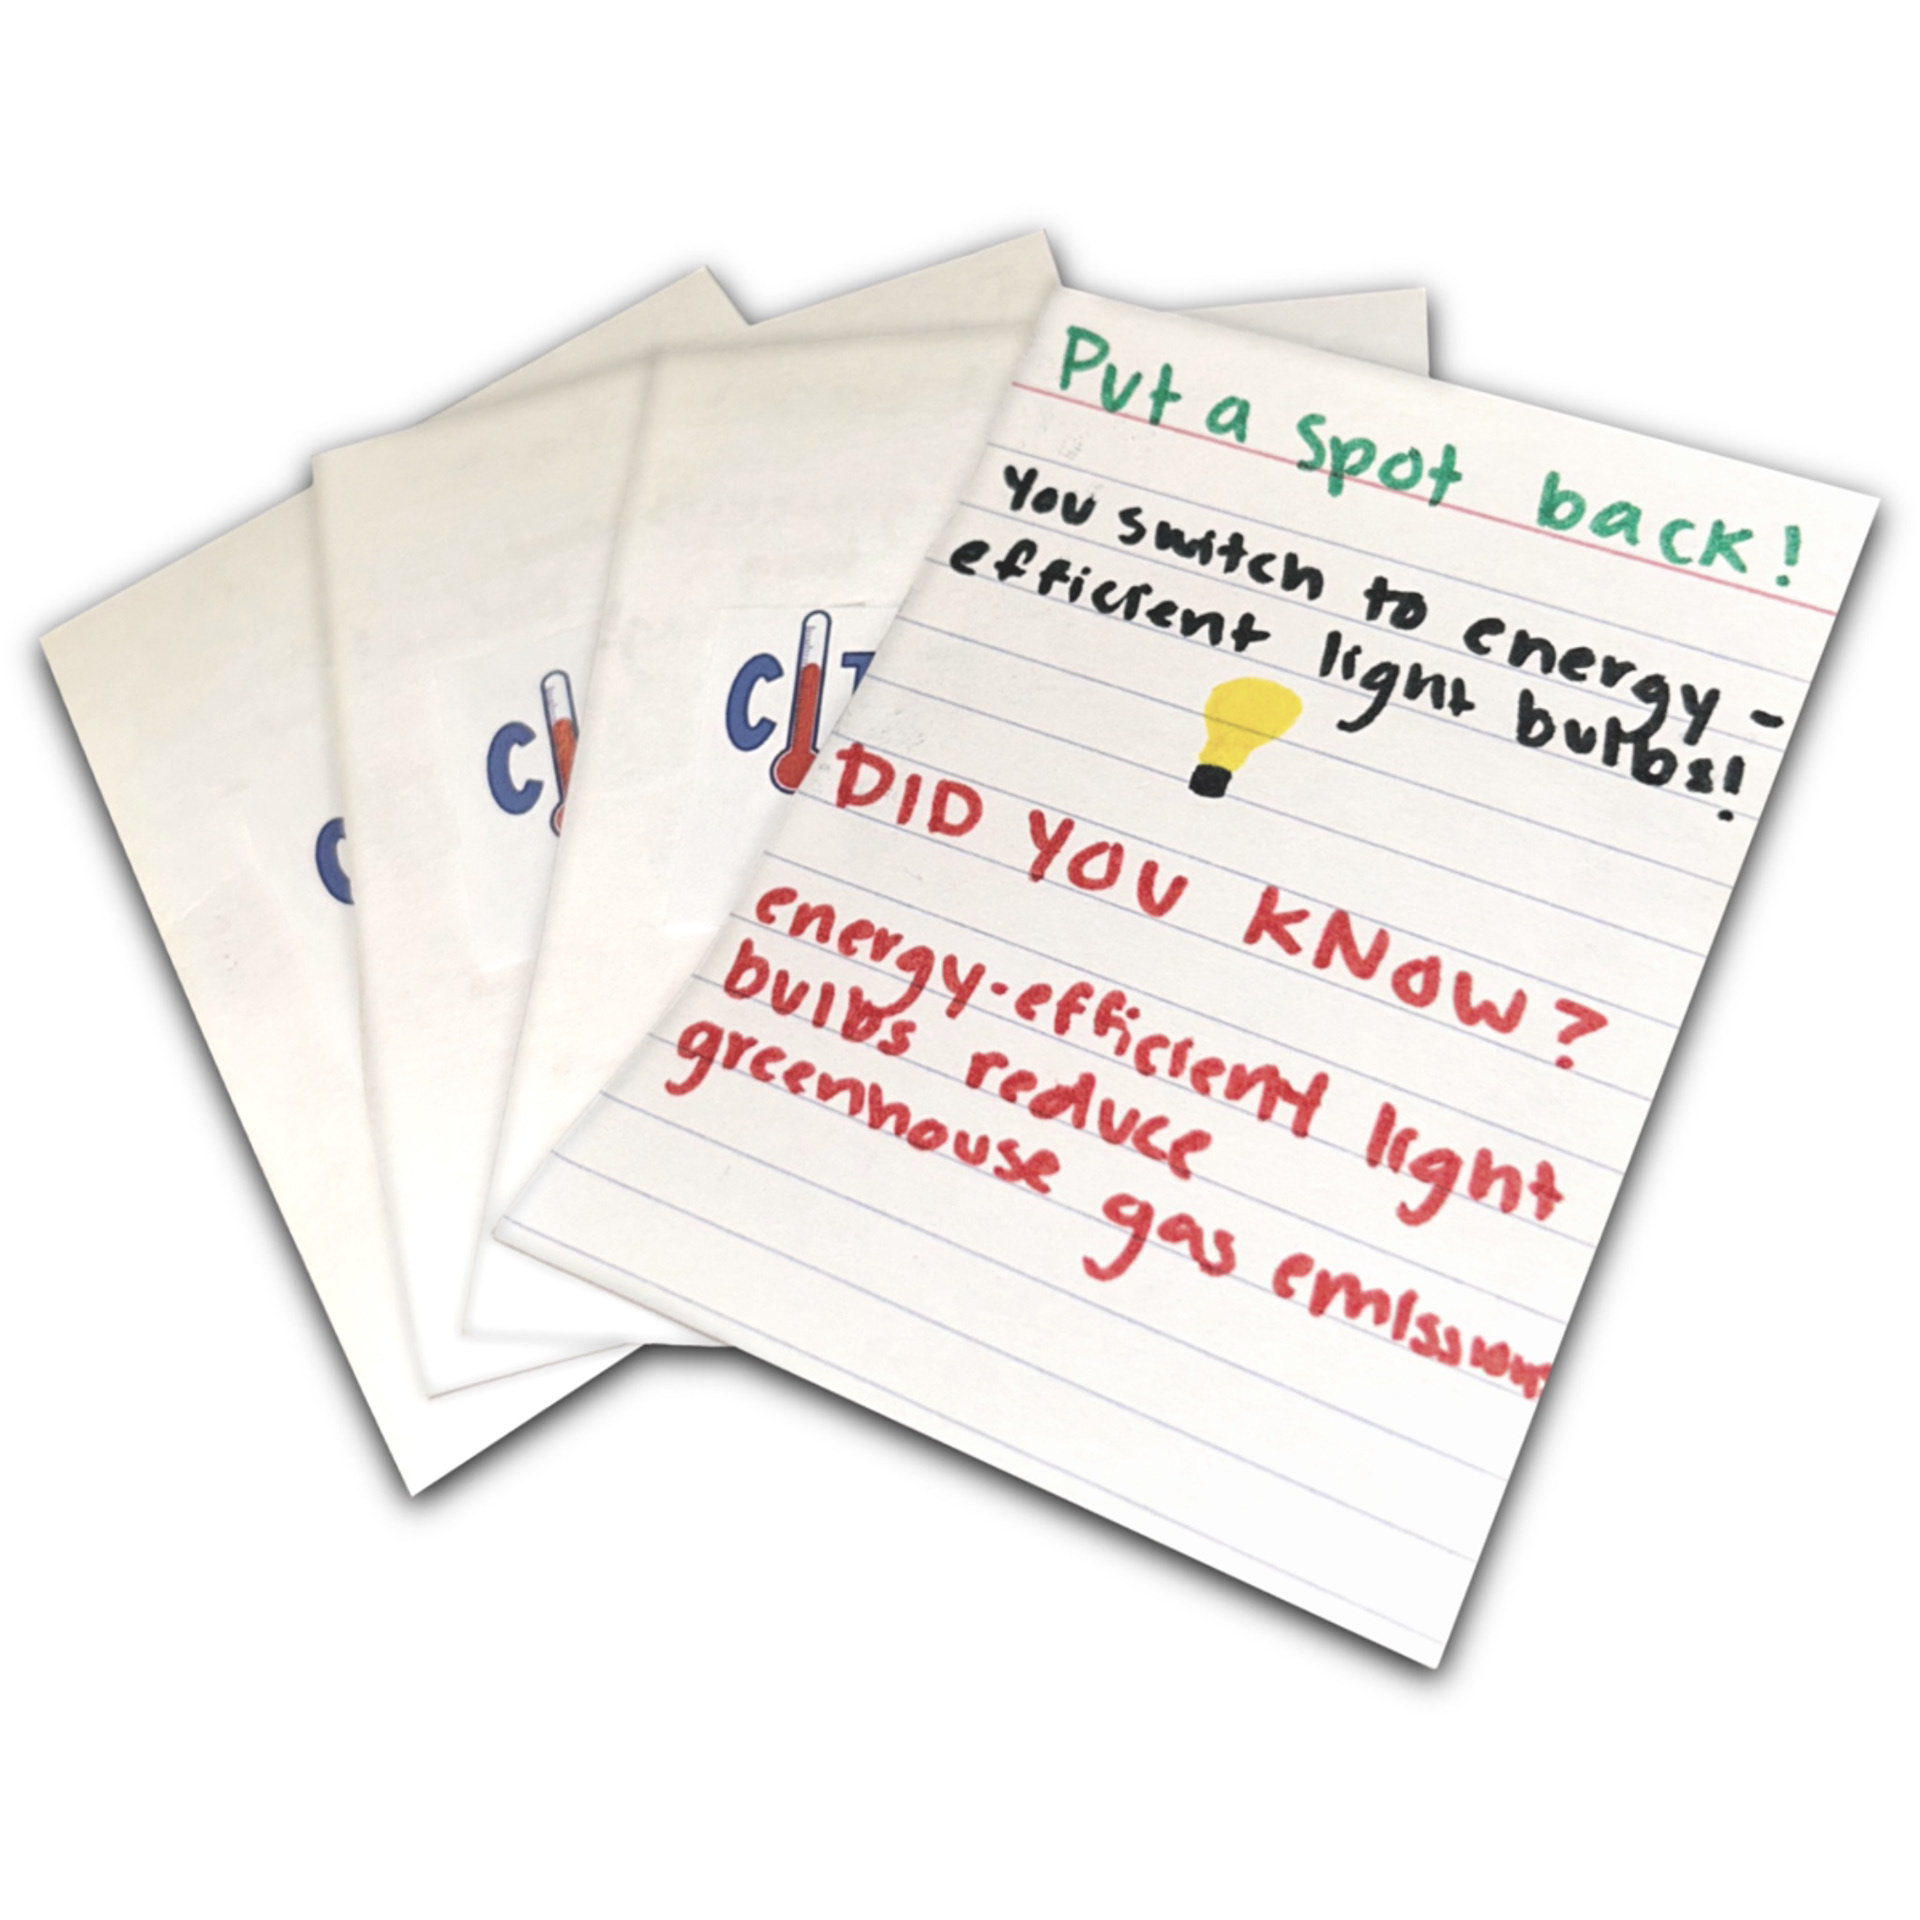 Put a spot back!
You switch to energy-
efficient light bulbs!
DID YOU KNOW?
energy-efficient light
bulbs reduce
greenhouse gas emissions
C
C
C T